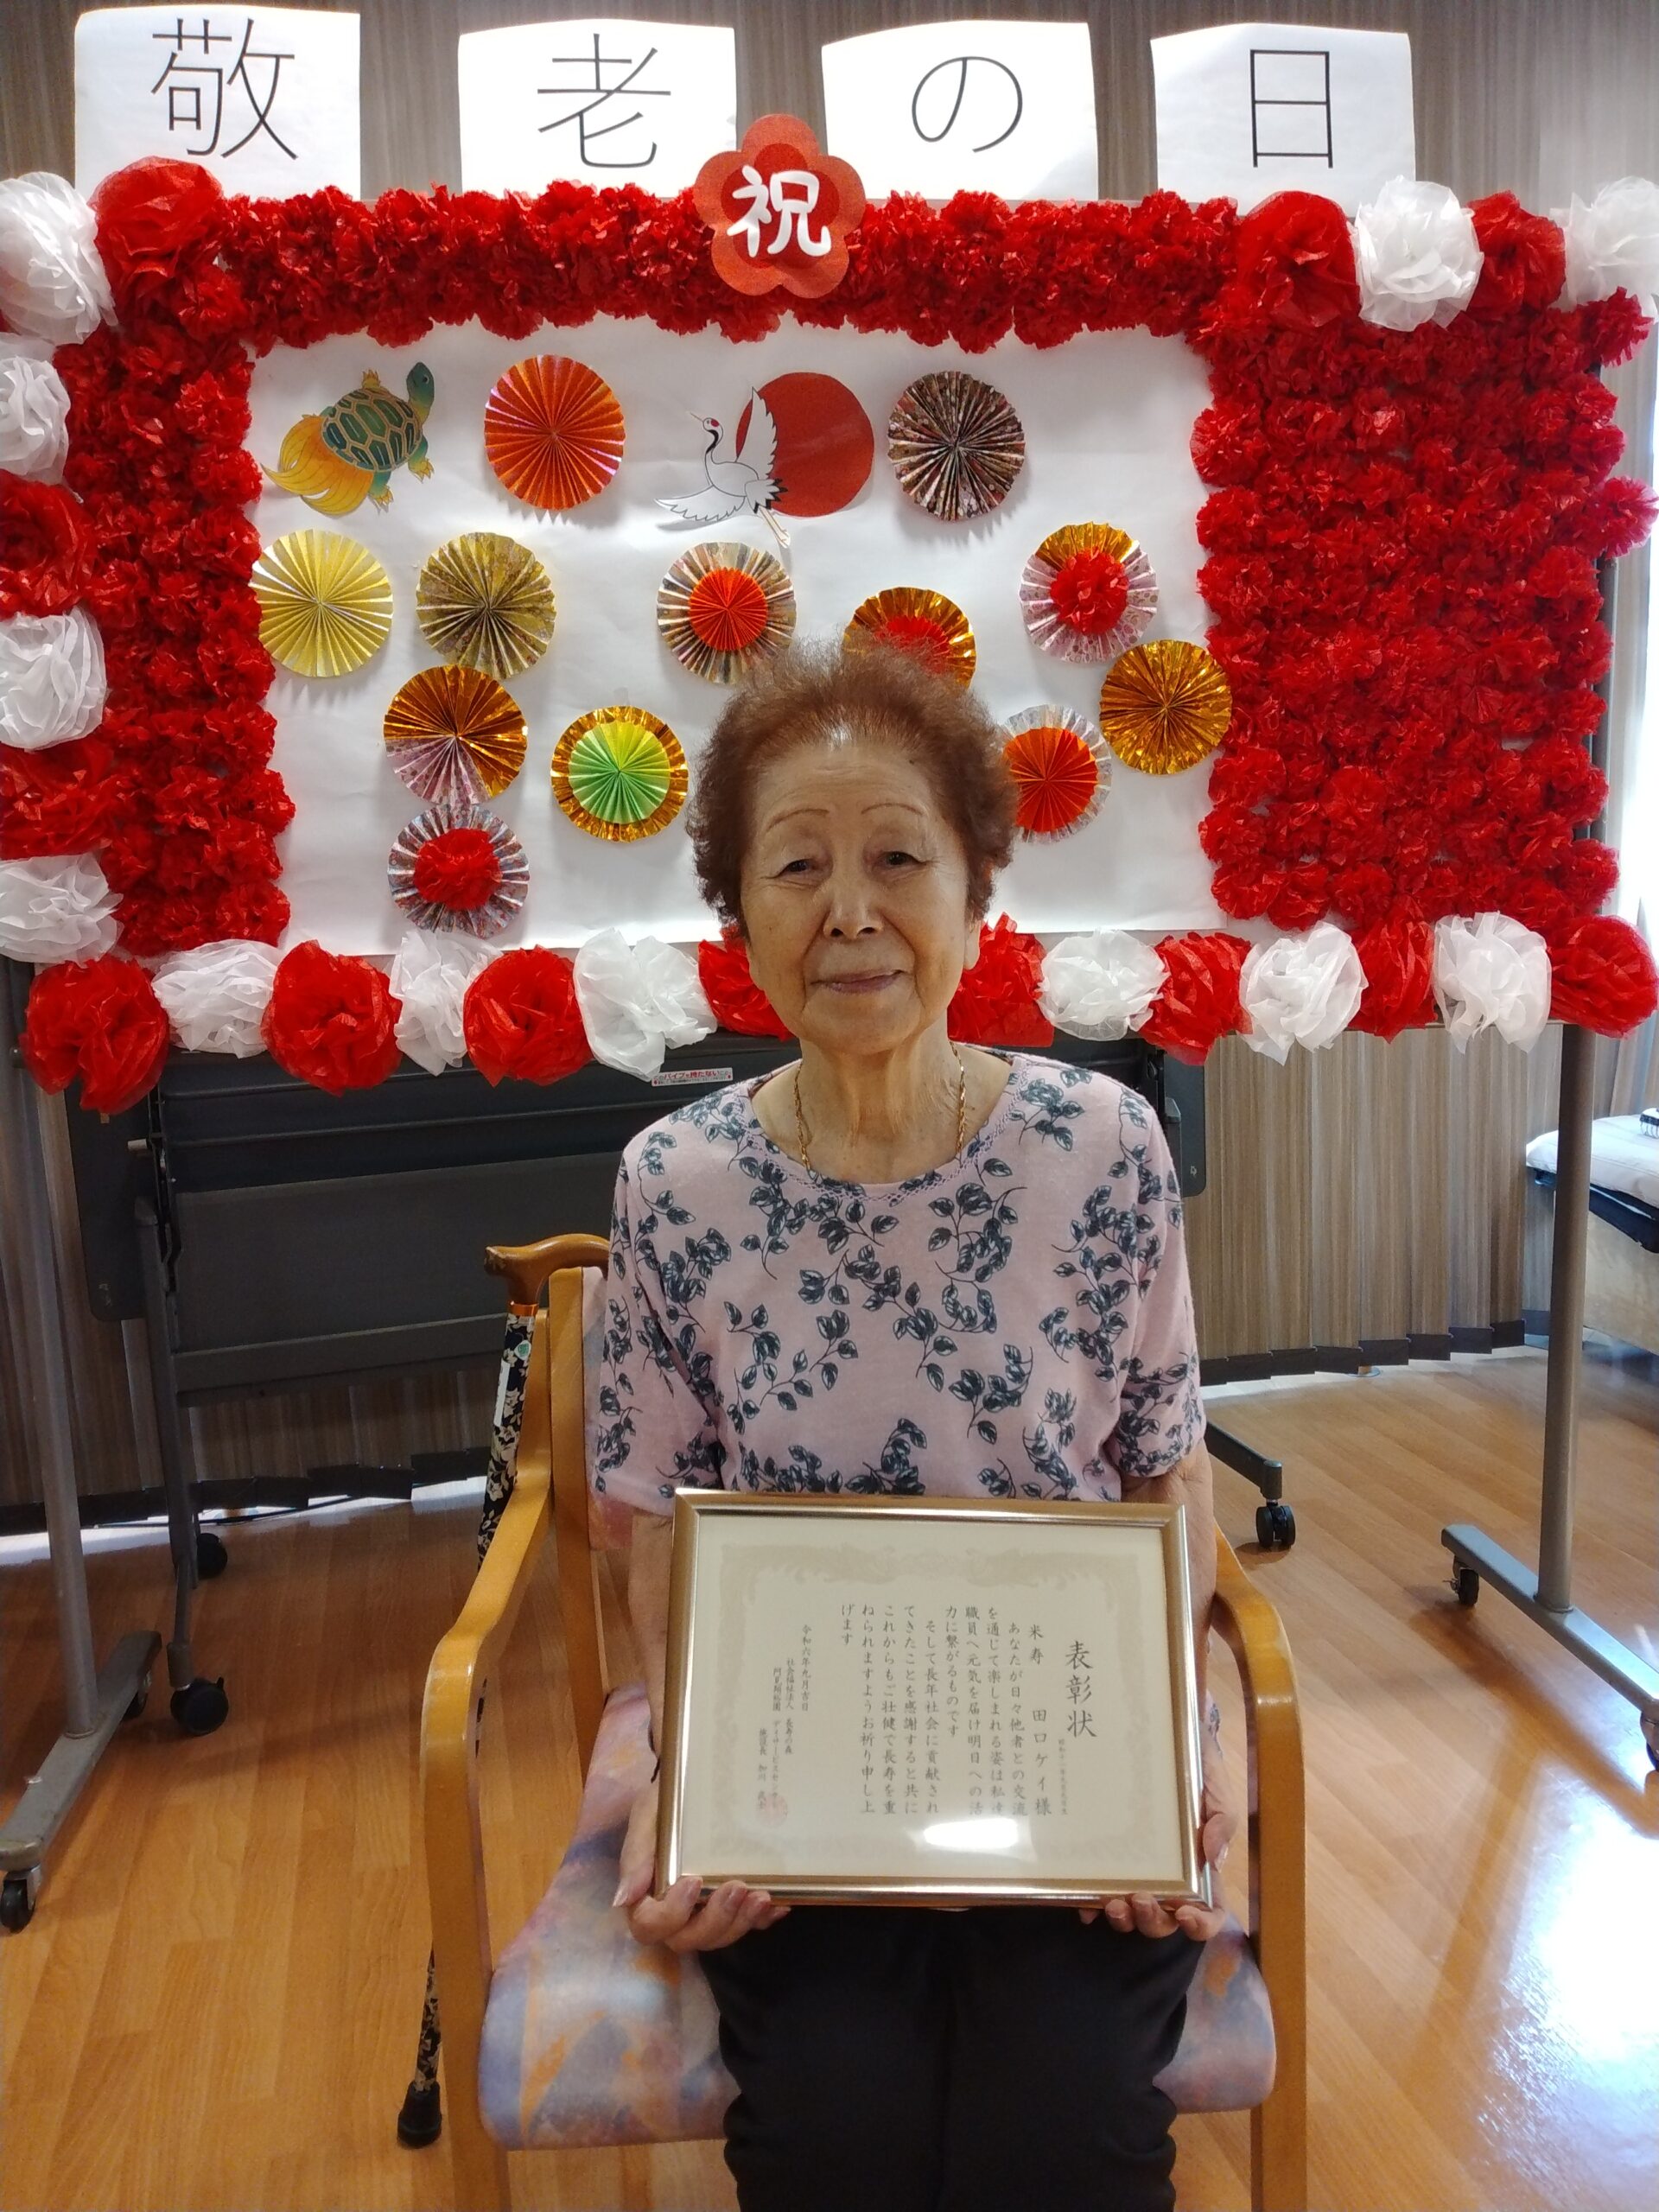 敬老の日
祝
パイプを持たない
表彰状
米寿 田口ケイ様
あなたが日々他者との交流
を通じて楽しまれる姿は私達
職員へ元気を届け明日への活
力に繋がるものです
そして長年社会に貢献され
てきたことを感謝すると共に
これからもご壮健で長寿を重
ねられますようお祈り申し上
げます
令和六年九月吉日
社会福祉法人 長寿の森